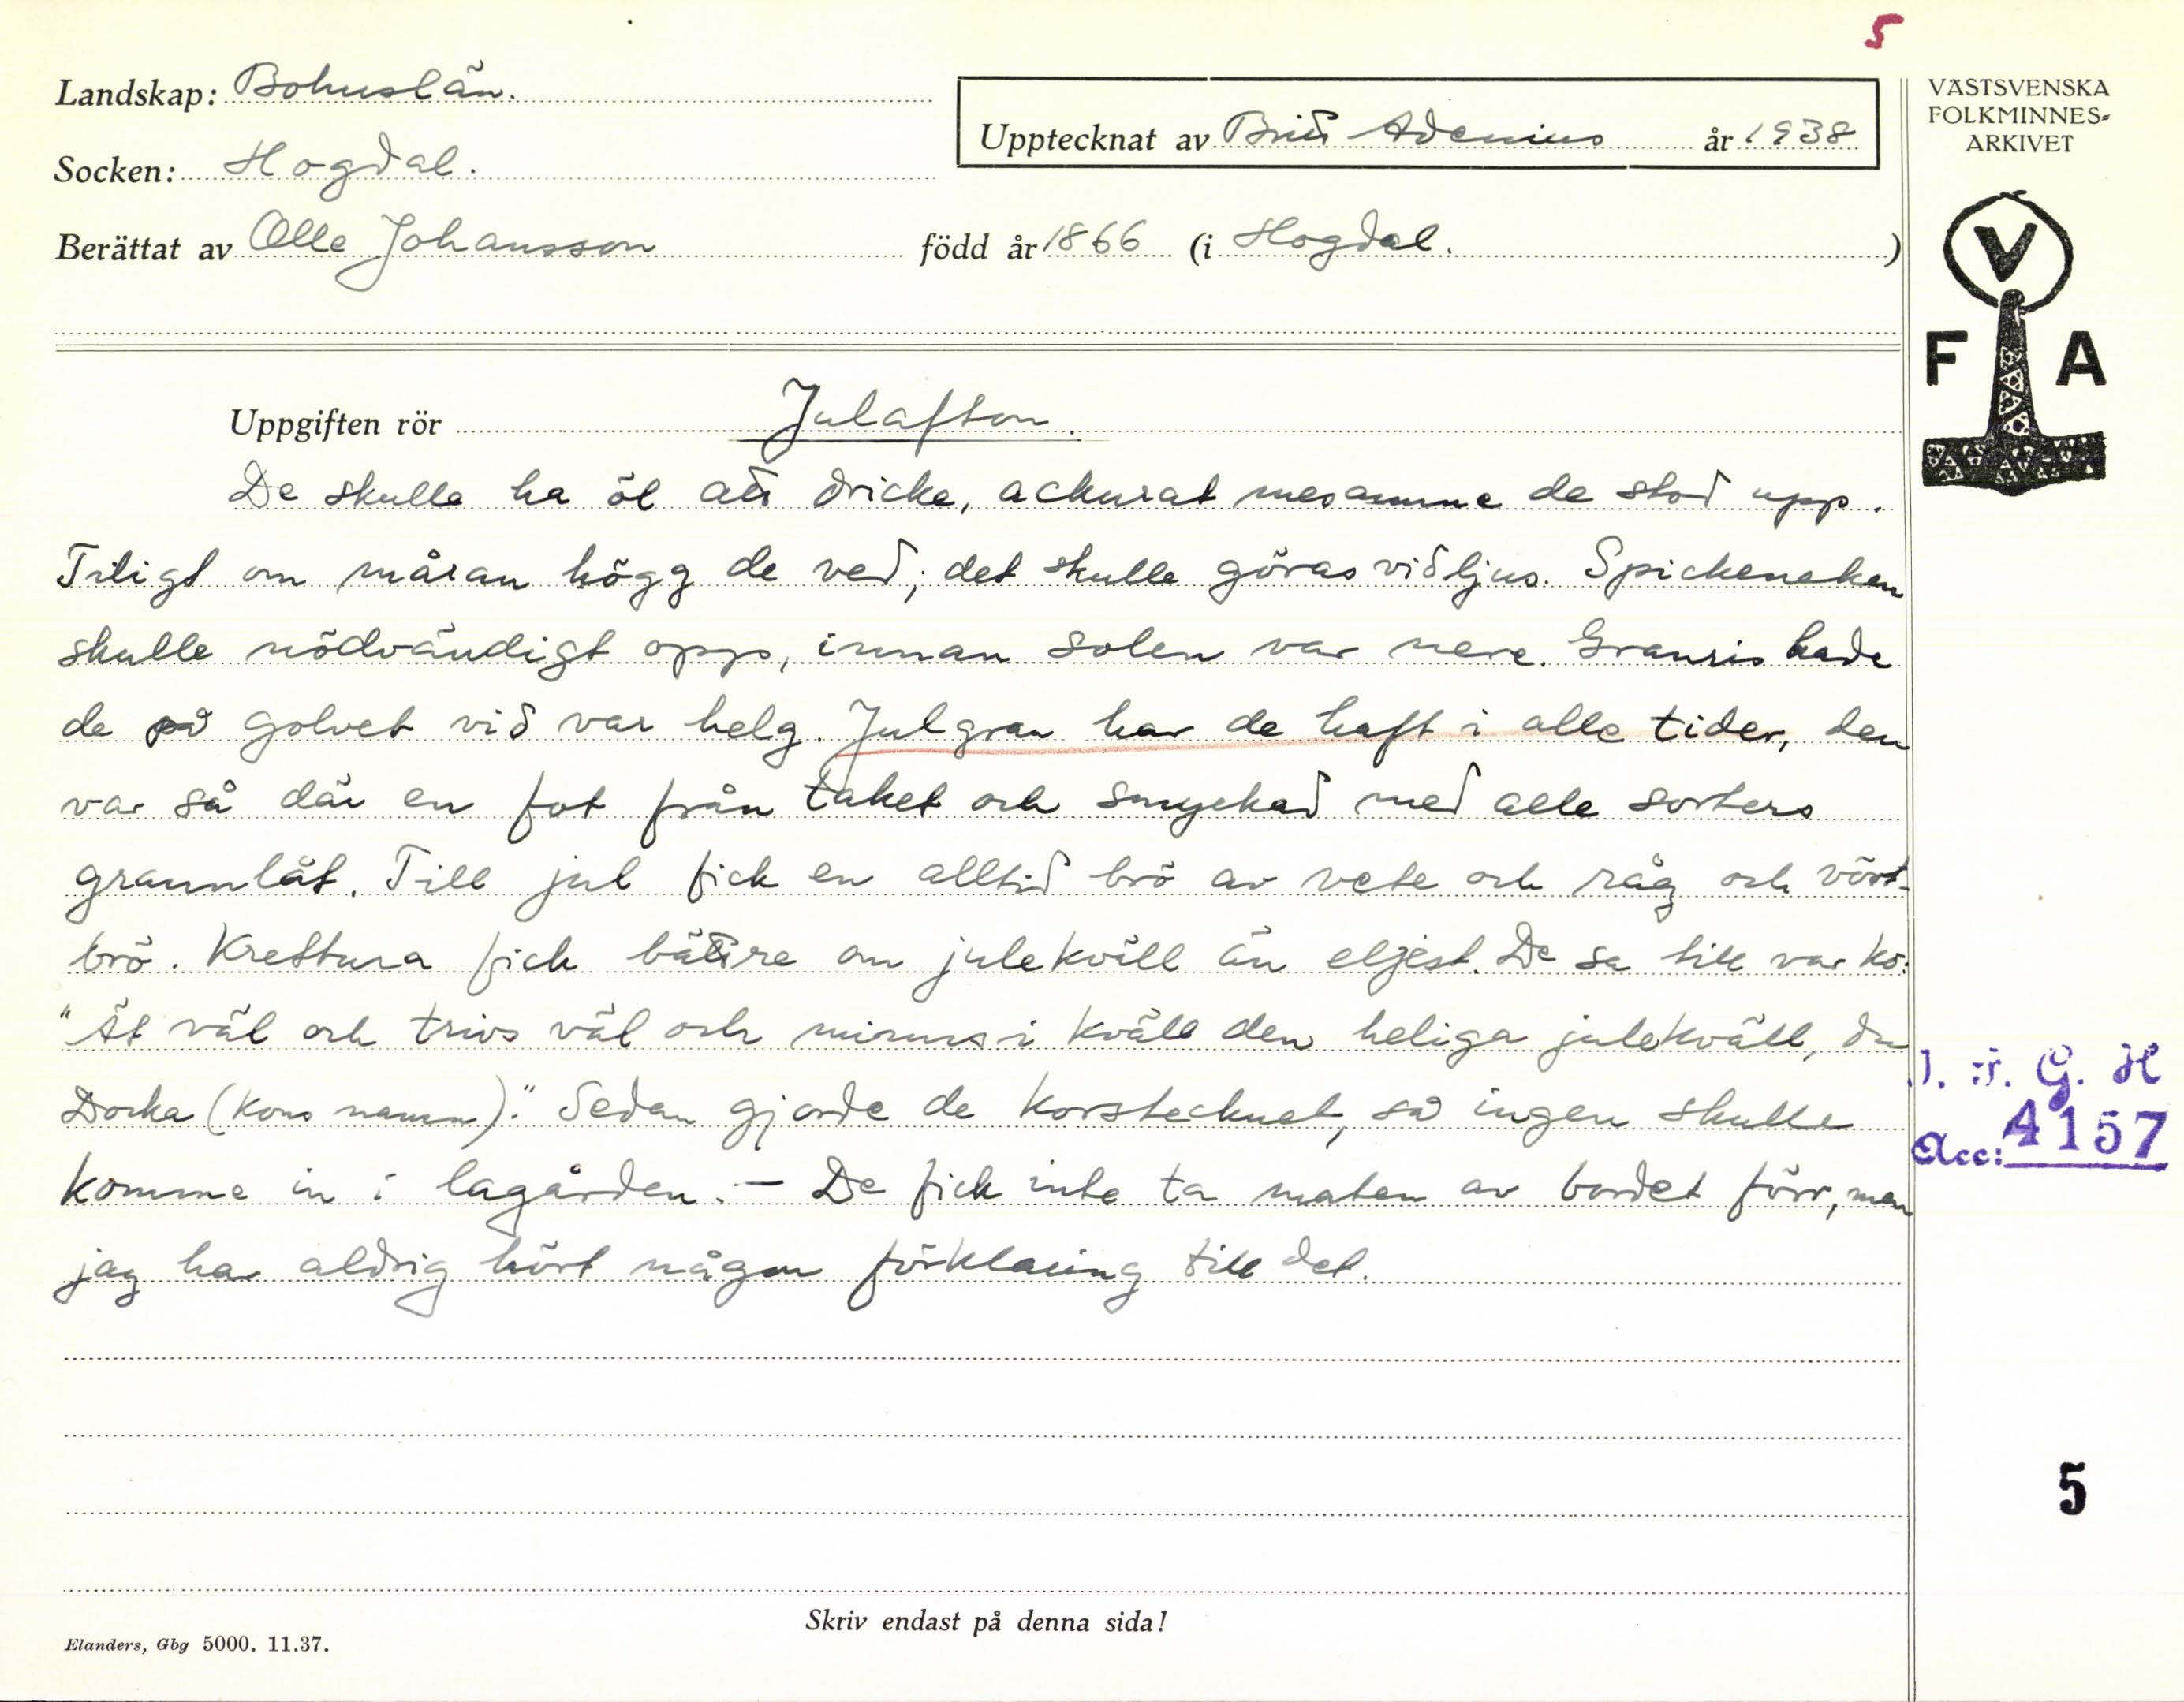 5
Landskap: Bohuslän.
Socken: Hogdal.
Upptecknat av Britt Adenius år 1938
Berättat av Olle Johansson född år 1866 (i Hogdal.)
VÄSTSVENSKA
FOLKMINNES-
ARKIVET
V
F A
Uppgiften rör Julafton.
De skulle ha öl att dricke, ackurat mesamme de stod upp.
Titigt om måran högg de ved; det skulle göras vidljus. Spickeneken
skulle nödvändigt opp, innan solen var nere. Granris hade
de på golvet vid var helg. Julgran har de haft i alle tider, den
var så där en fot från taket och smyckad med alle sorters
grannlåt. Till jul fick en alltid brö av vete och råg och vört-
brö. Krettura fick bättre om julekväll än eljest. De sa till var ko:
"Ät väl och trivs väl och minns i kväll den heliga julekväll, du
Docka (kons namn)." Sedan gjorde de korstecknet, så ingen skulle
komme in i lagården. – De fick inte ta maten av bordet förr, men
jag har aldrig hört någon förklaring till det.
G. H
Acc: 4157
5
Skriv endast på denna sida!
Elanders, Gbg 5000. 11.37.